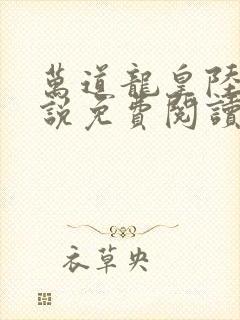 萬道龍皇陸
說免費閱讀
衣草央